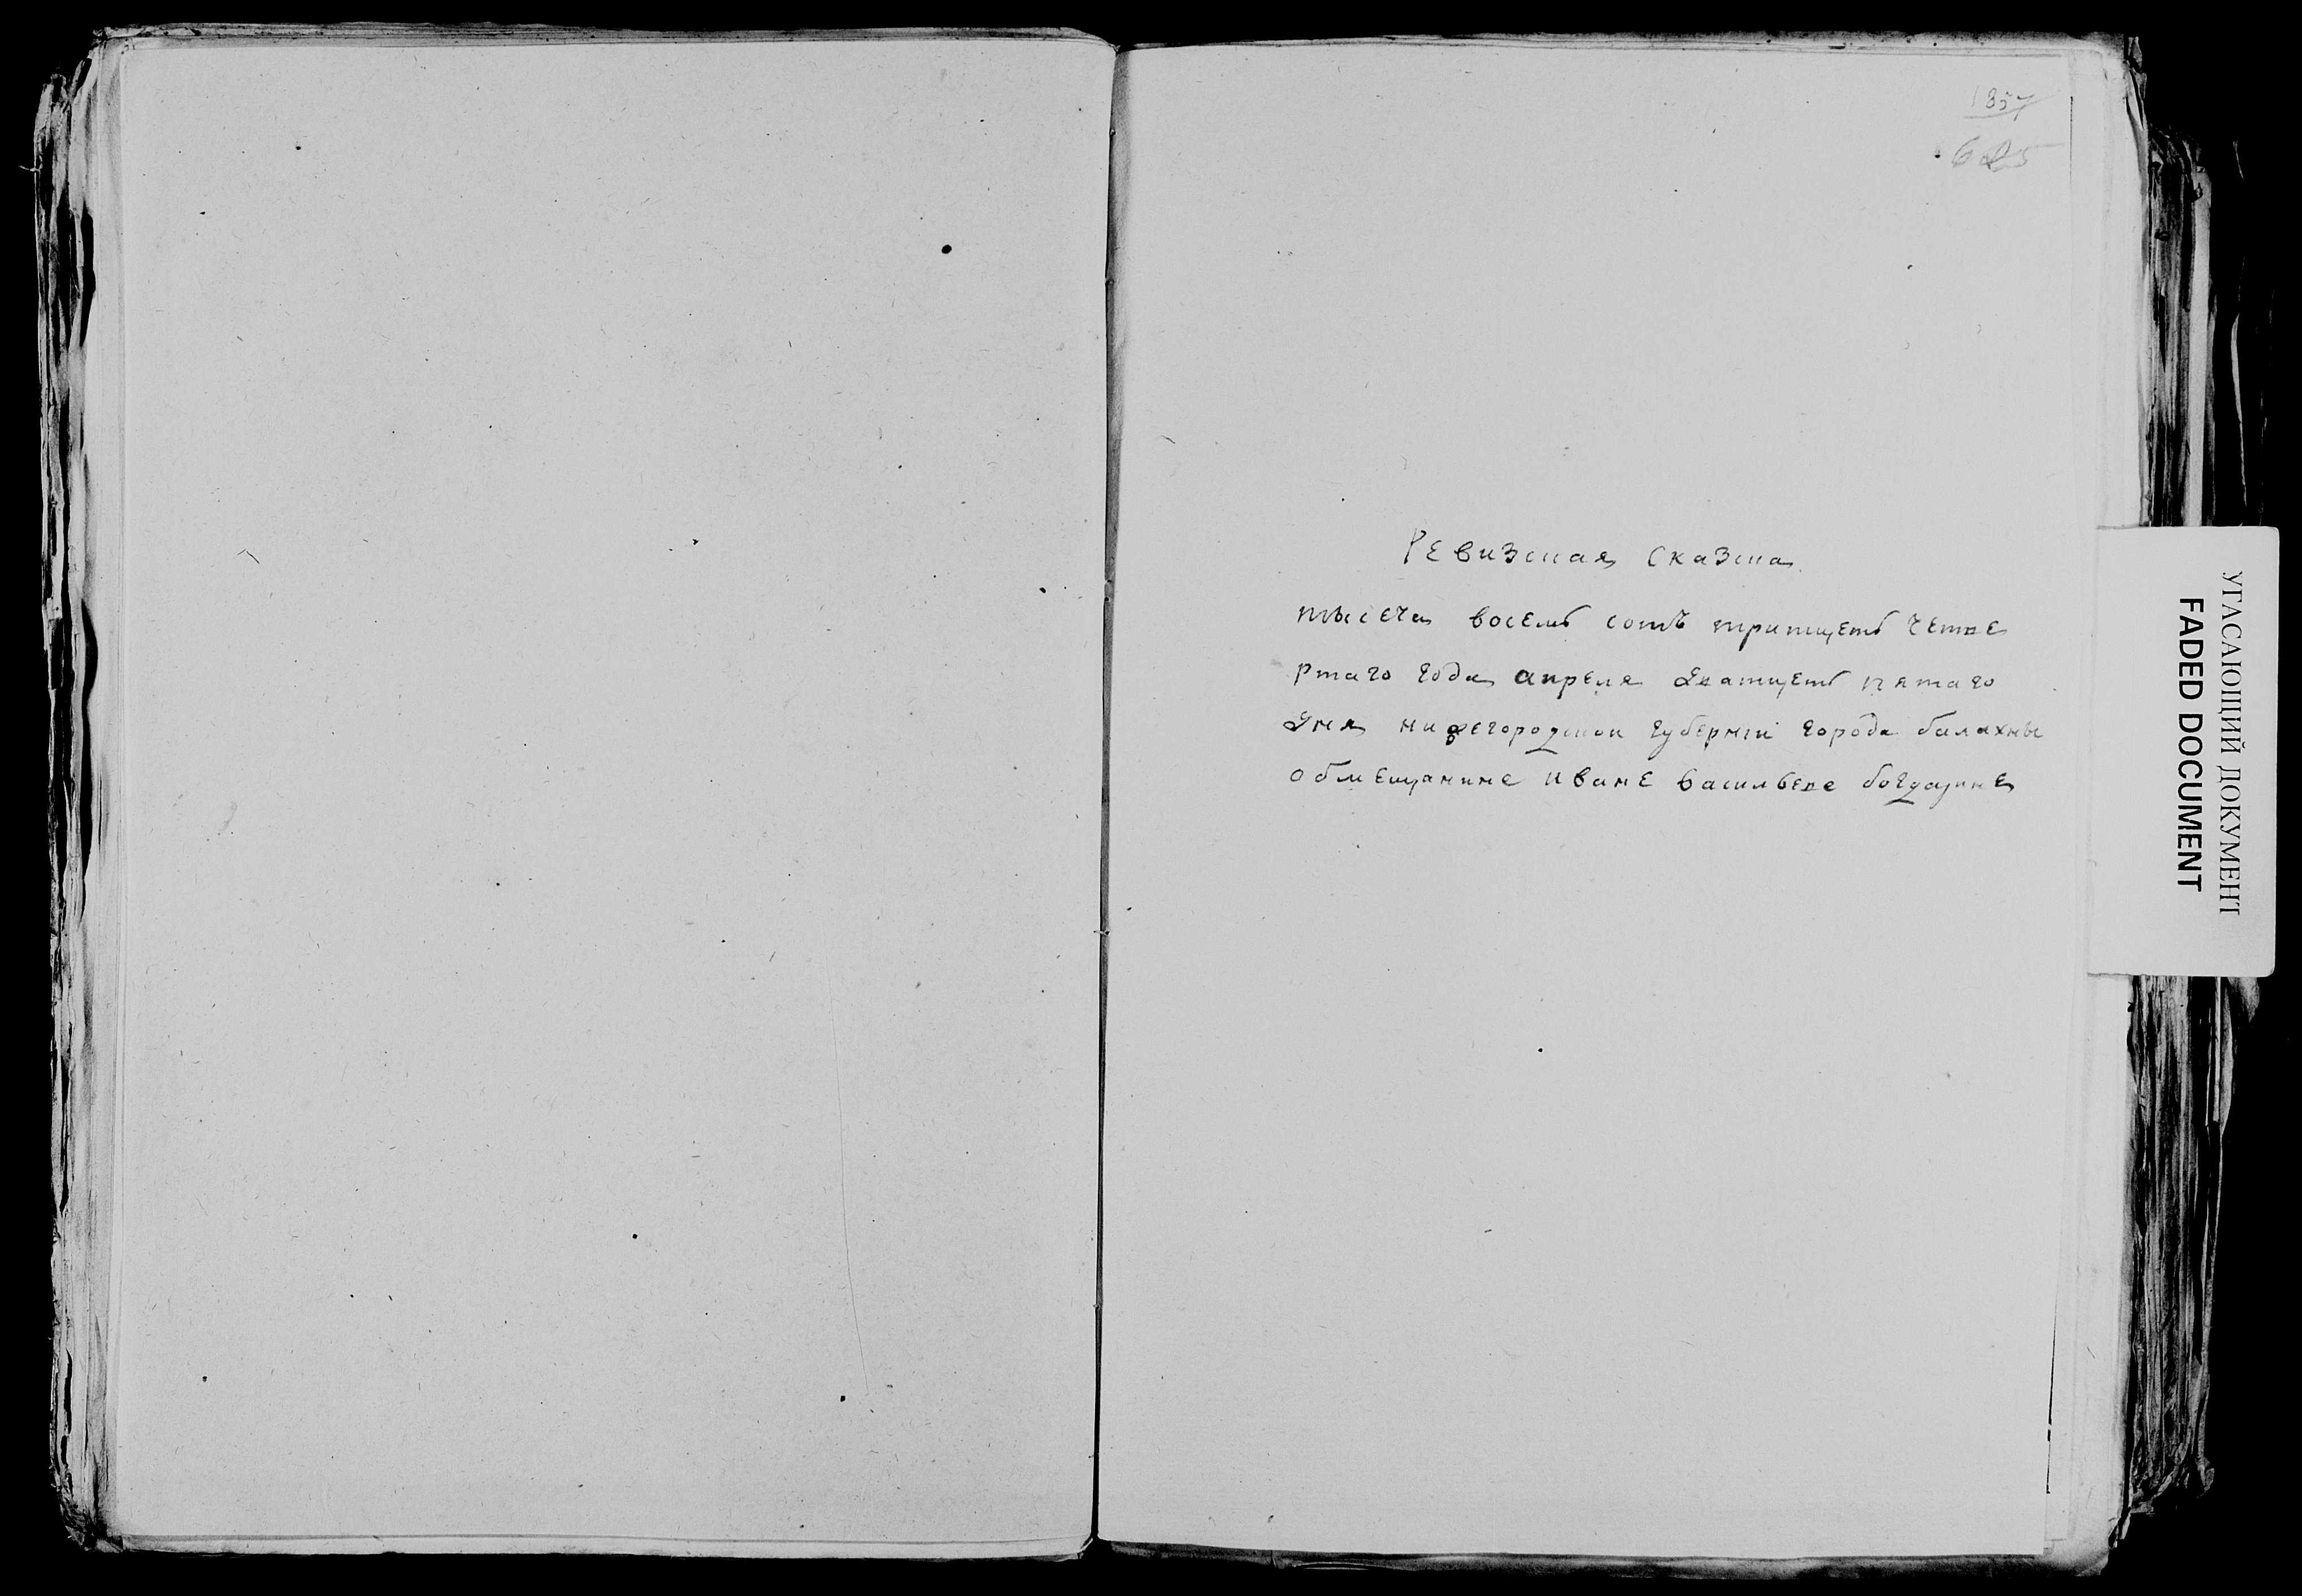 1357
625
Ревизская сказка
тысеча восемь сотъ тритцеть четве
ртаго года апреля дватцеть пятаго
дня нижегородской губернiи города балахны
обмещанине иване васильеве богдашине
УГАСАЮЩИЙ ДОКУМЕНТ
FADED DOCUMENT